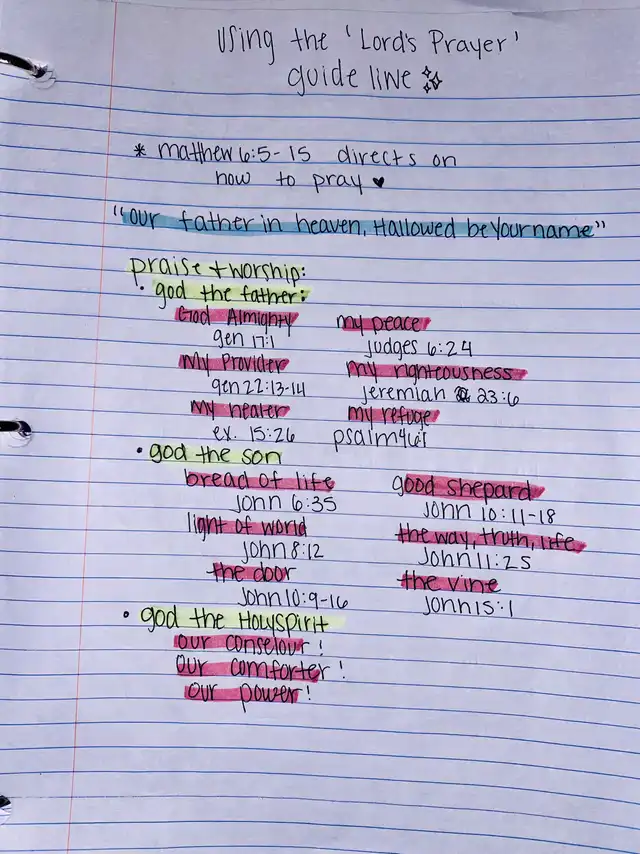 Using the 'Lord's Prayer'
guide line
* matthew 6:5-15 directs on
how to pray ♥
"our father in heaven, Hallowed be Your name"
praise + worship:
• god the father:
God Almighty
gen 17:1
My Provider
gen 22:13-14
My healer
ex. 15:26
my peace
judges 6:24
my righteousness
jeremiah 23:6
my refuge
psalm 46:1
• god the son
bread of life
John 6:35
light of world
John 8:12
the door
John 10:9-16
good shepard
John 10:11-18
the way, truth, life
John 11:25
the vine
John 15:1
• god the Holyspirit
our conselour!
our comforter!
our power!